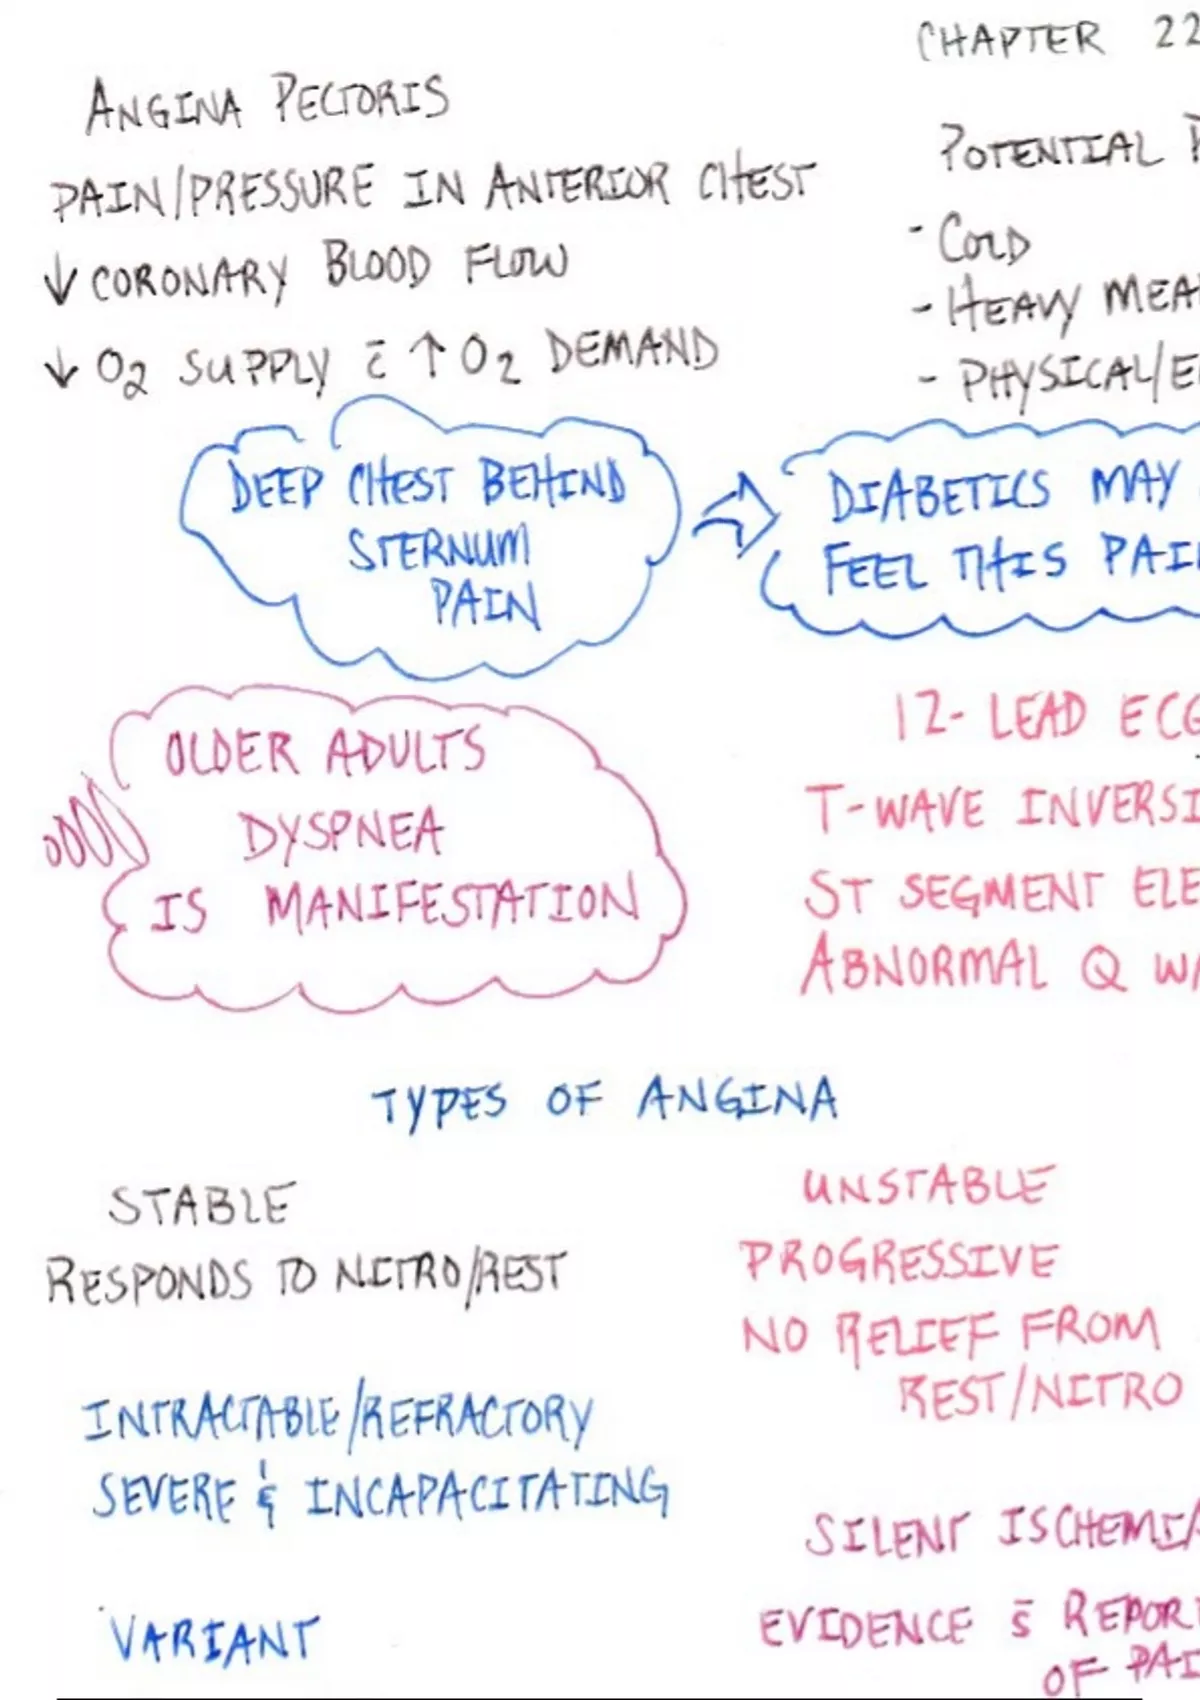 CHAPTER 22
ANGINA PECTORIS
PAIN/PRESSURE IN ANTERIOR CHEST
↓ CORONARY BLOOD FLOW
↓ O2 SUPPLY c̄ ↑ O2 DEMAND
POTENTIAL
- COLD
- HEAVY MEA
- PHYSICAL/E
DEEP CHEST BEHIND
STERNUM
PAIN
DIABETICS MAY
FEEL THIS PAI
OLDER ADULTS
DYSPNEA
IS MANIFESTATION
12-LEAD ECG
T-WAVE INVERSI
ST SEGMENT ELE
ABNORMAL Q WA
TYPES OF ANGINA
STABLE
RESPONDS TO NITRO/REST
UNSTABLE
PROGRESSIVE
NO RELIEF FROM
REST/NITRO
INTRACTABLE/REFRACTORY
SEVERE & INCAPACITATING
SILENT ISCHEMIA
EVIDENCE s̄ REPOR
OF PAI
VARIANT